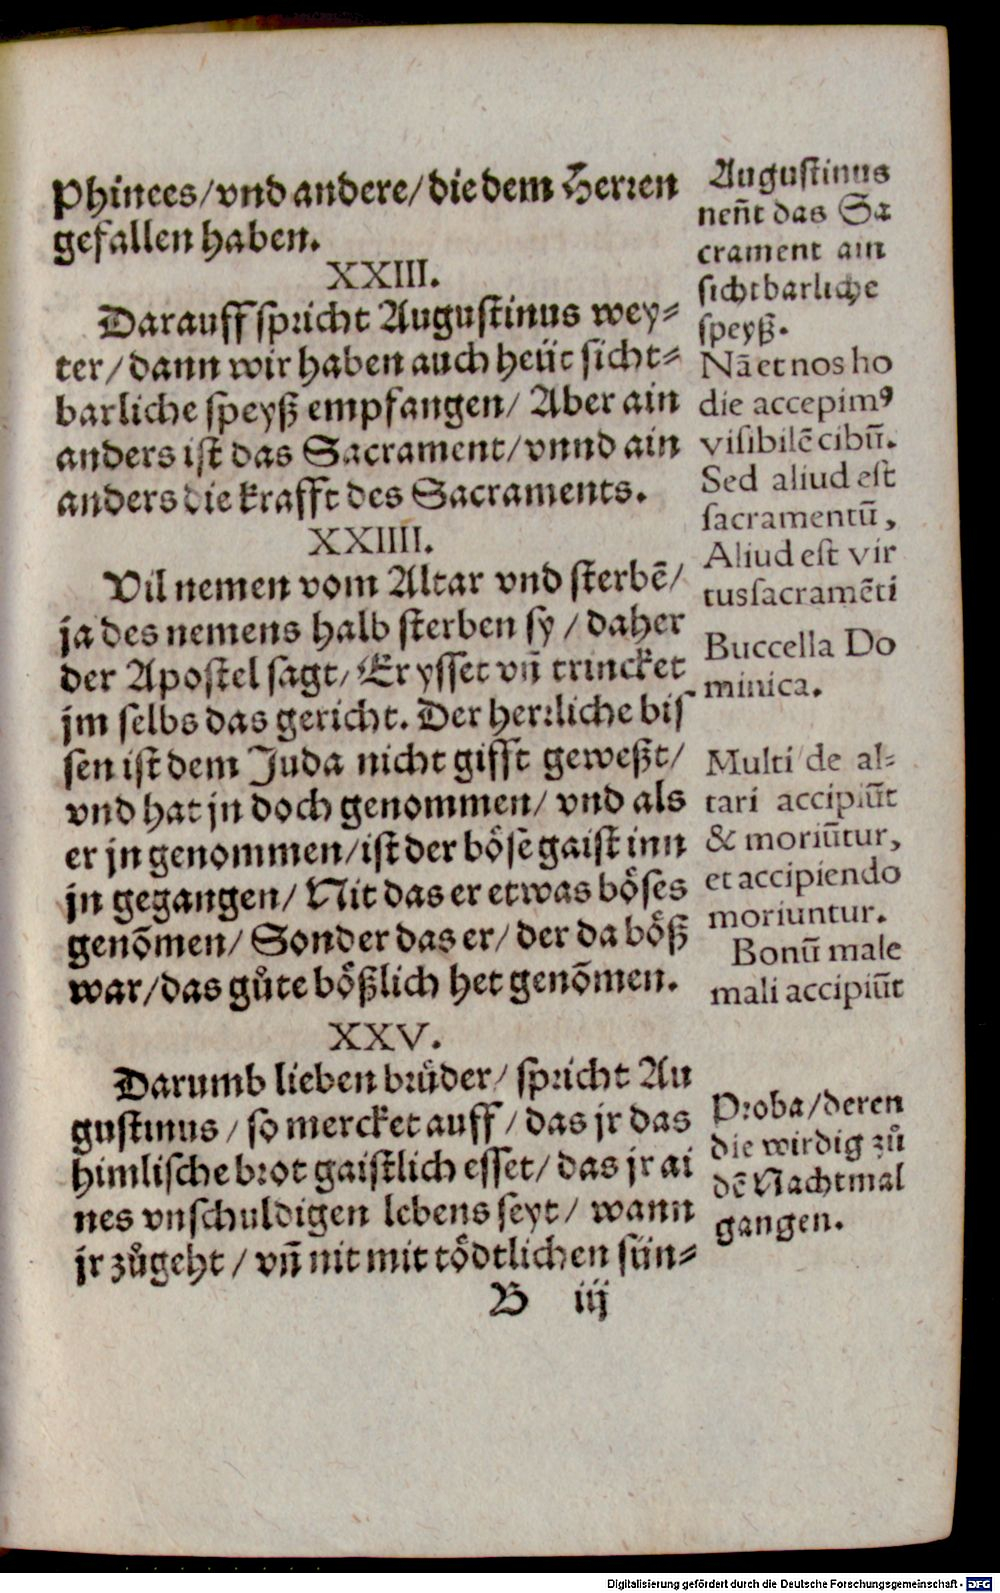 Phinees/vnd andere/die dem Herren
gefallen haben.
XXIII.
Darauff spricht Augustinus wey⸗
ter/dann wir haben auch heüt sicht⸗
barliche speyß empfangen/ Aber ain
anders ist das Sacrament/vnnd ain
anders die krafft des Sacraments.
XXIIII.
Vil nemen vom Altar vnd sterbē/
ja des nemens halb sterben sy / daher
der Apostel sagt/ Er ysset vñ trincket
jm selbs das gericht. Der herrliche bis
sen ist dem Juda nicht gifft geweßt/
vnd hat jn doch genommen/ vnd als
er jn genommen/ist der böse gaist inn
jn gegangen/ Nit das er etwas böses
genõmen/ Sonder das er/ der da böß
war/das gůte bößlich het genõmen.
XXV.
Darumb lieben brůder/ spricht Au
gustinus / so mercket auff / das jr das
himlische brot gaistlich esset/ das jr ai
nes vnschuldigen lebens seyt/ wann
jr zůgeht / vñ nit mit tödtlichen sün⸗
B iij
Augustinus
neñt das Sa
crament ain
sichtbarliche
speyß.
Nã et nos ho
die accepimꝰ
visibilē cibū.
Sed aliud est
sacramentū,
Aliud est vir
tus sacramēti
Buccella Do
minica.
Multi de al⸗
tari accipiūt
& moriūtur,
et accipiendo
moriuntur.
Bonū male
mali accipiūt
Proba/deren
die wirdig zů
dē Nachtmal
gangen.
Digitalisierung gefördert durch die Deutsche Forschungsgemeinschaft - DFG